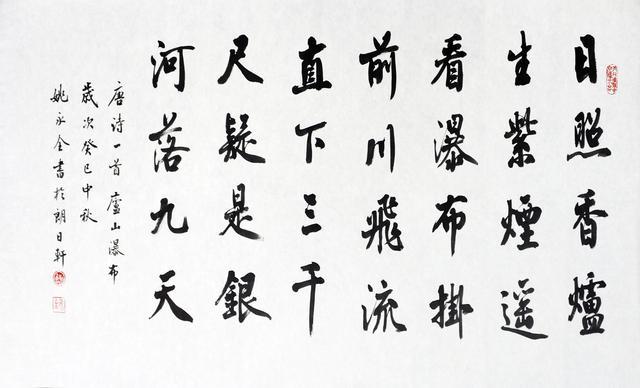 日照香爐
生紫煙遥
看瀑布掛
前川飛流
直下三千
尺疑是銀
河落九天
唐诗一首 廬山瀑布
歲次癸巳中秋
姚永全書於朗日軒